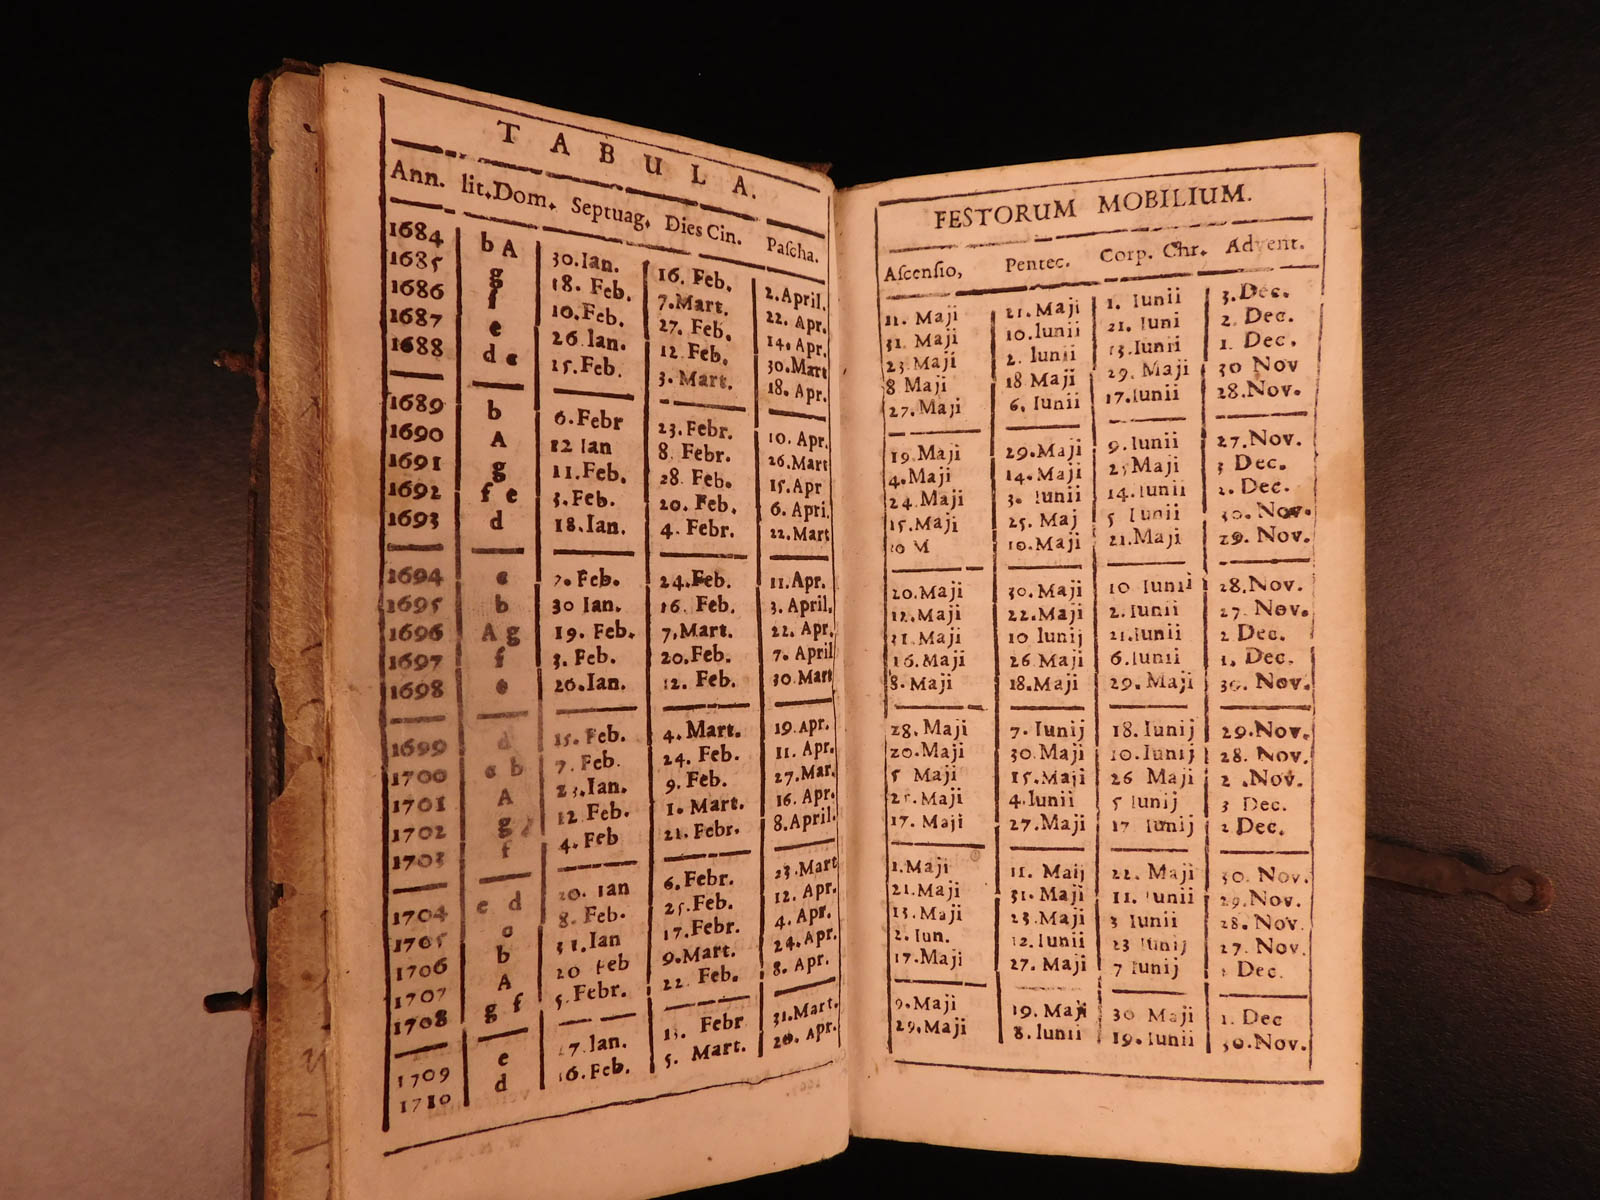 TABULA.
Ann. lit. Dom. Septuag. Dies Cin. Pascha.
1684 b A 30. Ian. 16. Feb. 2. April.
1685 g 18. Feb. 7. Mart. 22. Apr.
1686 f 10. Feb. 27. Feb. 14. Apr.
1687 e 26 Ian. 12 Feb. 30. Mart
1688 d c 15. Feb. 3. Mart. 18. Apr.
1689 b 6. Febr 23. Febr. 10. Apr.
1690 A 12 Ian 8. Febr. 26. Mart
1691 g 11. Feb. 28. Feb. 15. Apr
1692 f e 3. Feb. 20. Feb. 6. Apri.
1693 d 18. Ian. 4. Febr. 22. Mart
1694 c 7. Feb. 24. Feb. 11. Apr.
1695 b 30 Ian. 16. Feb. 3. April.
1696 A g 19. Feb. 7. Mart. 22. Apr.
1697 f 3. Feb. 20. Feb. 7. April
1698 e 26. Ian. 12. Feb. 30 Mart
1699 d 15. Feb. 4. Mart. 19. Apr.
1700 c b 7. Feb. 24. Feb. 11. Apr.
1701 A 23. Ian. 9. Feb. 27. Mar.
1702 g 12 Feb. 1. Mart. 16. Apr.
1703 f 4. Feb 21. Febr. 8. April.
1704 e d 20. Ian 6. Febr. 23. Mart
1705 8. Feb. 25. Feb. 12. Apr.
1706 b 31. Ian 17. Febr. 4. Apr.
1707 A 20 Feb 9. Mart. 24. Apr.
1708 g f 5. Febr. 22 Feb. 8. Apr.
1709 e 27. Ian. 13. Febr 31. Mart.
1710 d 16. Feb. 5. Mart. 20. Apr.
FESTORUM MOBILIUM.
Ascensio, Pentec. Corp. Chr. Advent.
11. Maji 21. Maji 1. Iunii 3. Dec.
31. Maji 10. Iunii 21. Iuni 2. Dec.
23. Maji 2. Iunii 13. Iunii 1. Dec.
8 Maji 18 Maji 29. Maji 30 Nov
27. Maji 6. Iunii 17. Iunii 28. Nov.
19. Maji 29. Maji 9. Iunii 27. Nov.
4. Maji 14. Maji 25 Maji 3 Dec.
24 Maji 3. Iunii 14. Iunii 2. Dec.
15. Maji 25. Maj 5 Iunii 30. Nov.
M 10. Maji 21. Maji 29. Nov.
20. Maji 30. Maji 10 Iunii 28. Nov.
12. Maji 22. Maji 2. Iunii 27 Nov.
31 Maji 10 Iunij 21. Iunii 2 Dec.
16. Maji 26 Maji 6. Iunii 1. Dec.
8. Maji 18. Maji 29. Maji 30. Nov.
28. Maji 7. Iunij 18. Iunij 29. Nov.
20. Maji 30. Maji 10. Iunij 28. Nov.
5 Maji 15. Maji 26 Maji 2 . Nov.
25. Maji 4. Iunii 5 Iunij 3 Dec.
17. Maji 27. Maji 17 Iunij 2 Dec.
1. Maji 11. Maij 22. Maji 30. Nov.
21. Maji 31. Maji 11. Iunii 29. Nov.
13. Maji 23. Maji 3 Iunii 28. Nov.
2. Iun. 12. Iunii 23 Iunij 27. Nov.
17. Maji 27. Maji 7 Iunij Dec.
9. Maji 19. Maji 30 Maji 1. Dec
29. Maji 8. Iunii 19. Iunii 30. Nov.